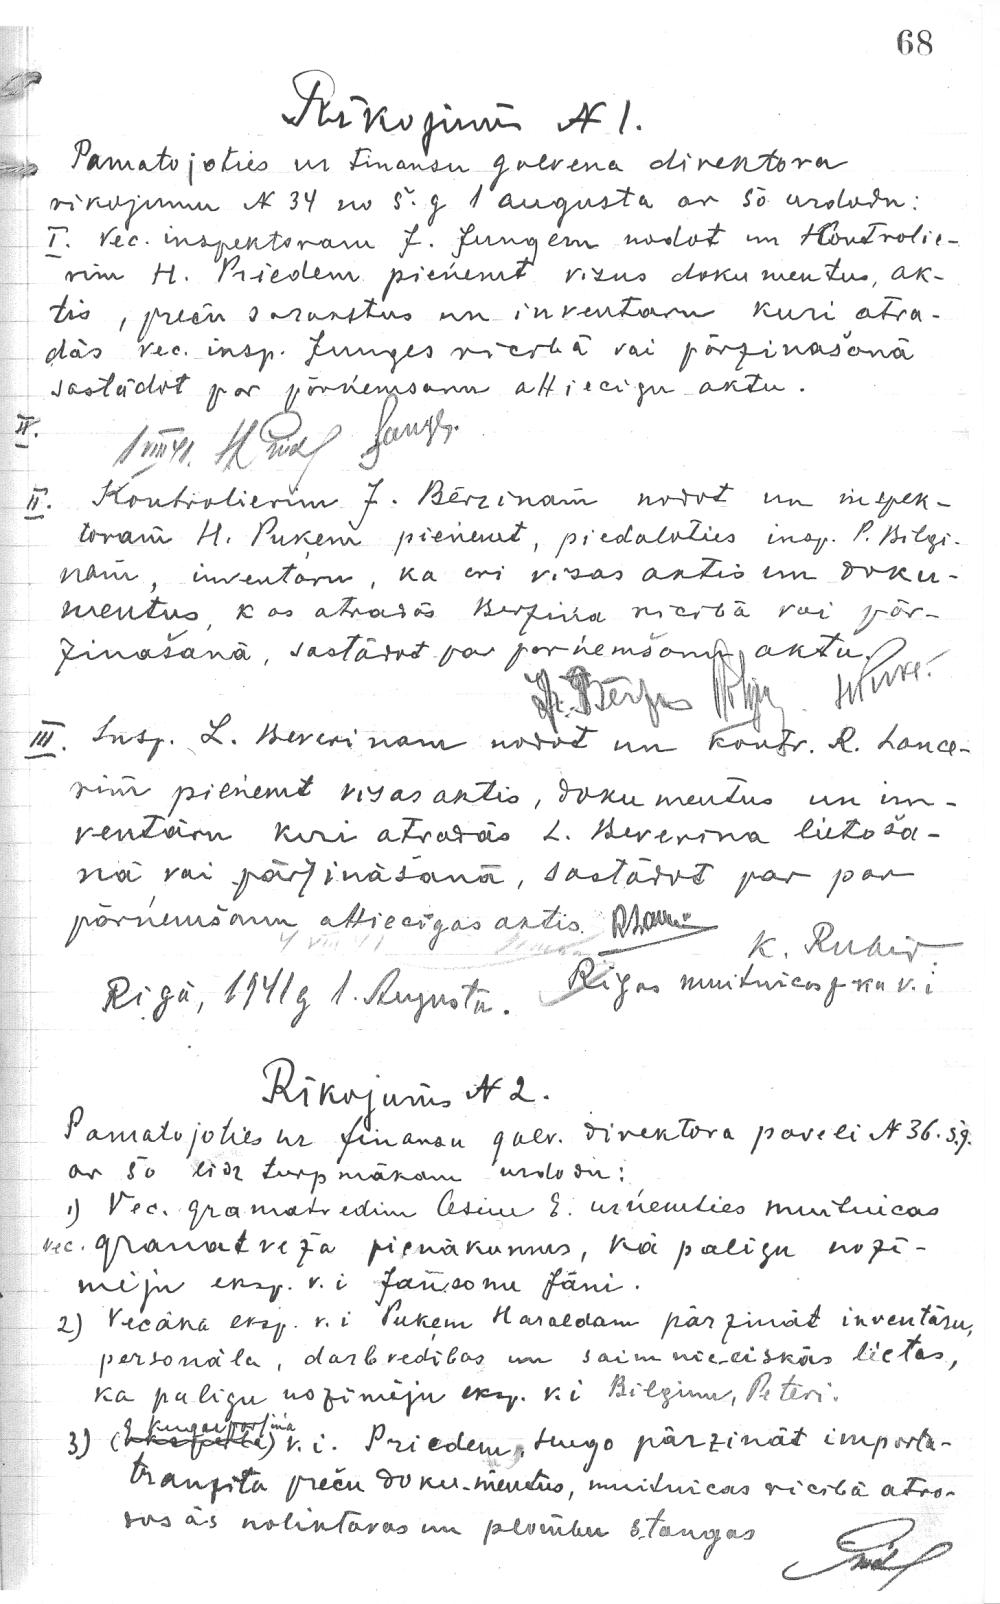 68
Rīkojums N 1.
Pamatojoties uz finansu galvena direktora
rikojumu N 34 no š. g 1 augusta ar šo uzdodu:
I. Vec. inspektoram J. Jungem nodot un Kontrolie-
rim H. Priedem pieņemt visus dokumentus, ak-
tis, preču sarakstus un inventaru kuri atra-
dās vec. insp. Junges ricībā vai pārzinašanā
sastādot par pārņemšanu attiecigu aktu.
II.
1 VIII 41.
II. Kontrolierim J. Bērzinam nodot un inspek-
toram H. Puķem pieņemt, piedaloties insp. P. Bilgi-
nam, inventaru, ka arī visas aktis un doku-
mentus, kas atradās Berziņa ricībā vai pār-
zinašanā, sastādot par parņemšanu aktu.
III. Insp. L. Beverinam nodot un kontr. R. Lance-
rim pieņemt visas aktis, dokumentus un in-
ventāru kuri atradās L. Beverina lietoša-
nā vai pārzināšanā, sastādot par par
pārņemšanu attiecīgas aktis.
4 VIII 41
K.
Rigā, 1941 g 1. Augustā. Rīgas muitnicas pr-ka v. i
Rīkojums N 2.
Pamatojoties uz finansu galv. direktora paveli N 36. š.g.
ar šo līdz turpmākam uzdodu:
1) Vec. gramatvedim E. uzņemties muitnicas
vec. gramatveža pienākumus, kā paligu nozī-
mēju eksp. v. i Jansonu Jāni.
2) Vecāka eksp. v. i Puķem Haraldam pārzināt inventāru,
personāla, darbvedības un saimnieciskās lietas,
ka paligu nozimēju eksp. v. i Bilginu, Pēteri.
3) v. i. Priedem, Hugo pārzināt importa-
tranzita preču dokumentus, muitnicas ricībā atro-
došās noliktavas un plombu stangas